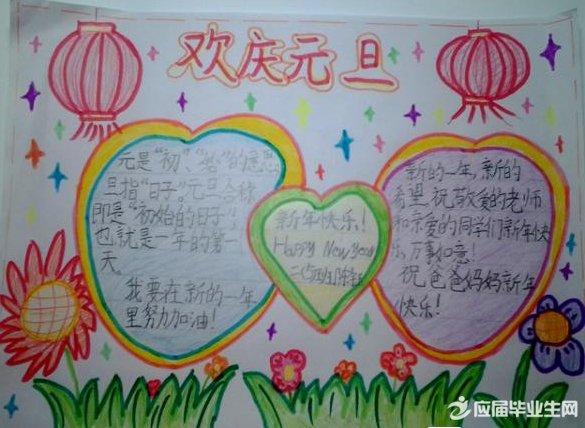 欢庆元旦
元是“初”、“始”的意思
旦指“日子”。元旦合称
即是“初始的日子”，
也就是一年的第一
天
我要在新的一年
里努力加油！
新年快乐！
Happy New Year
新的一年，新的
希望。祝敬爱的老师
和亲爱的同学们新年快
乐，万事如意！
祝爸爸妈妈新年
快乐！
应届毕业生网